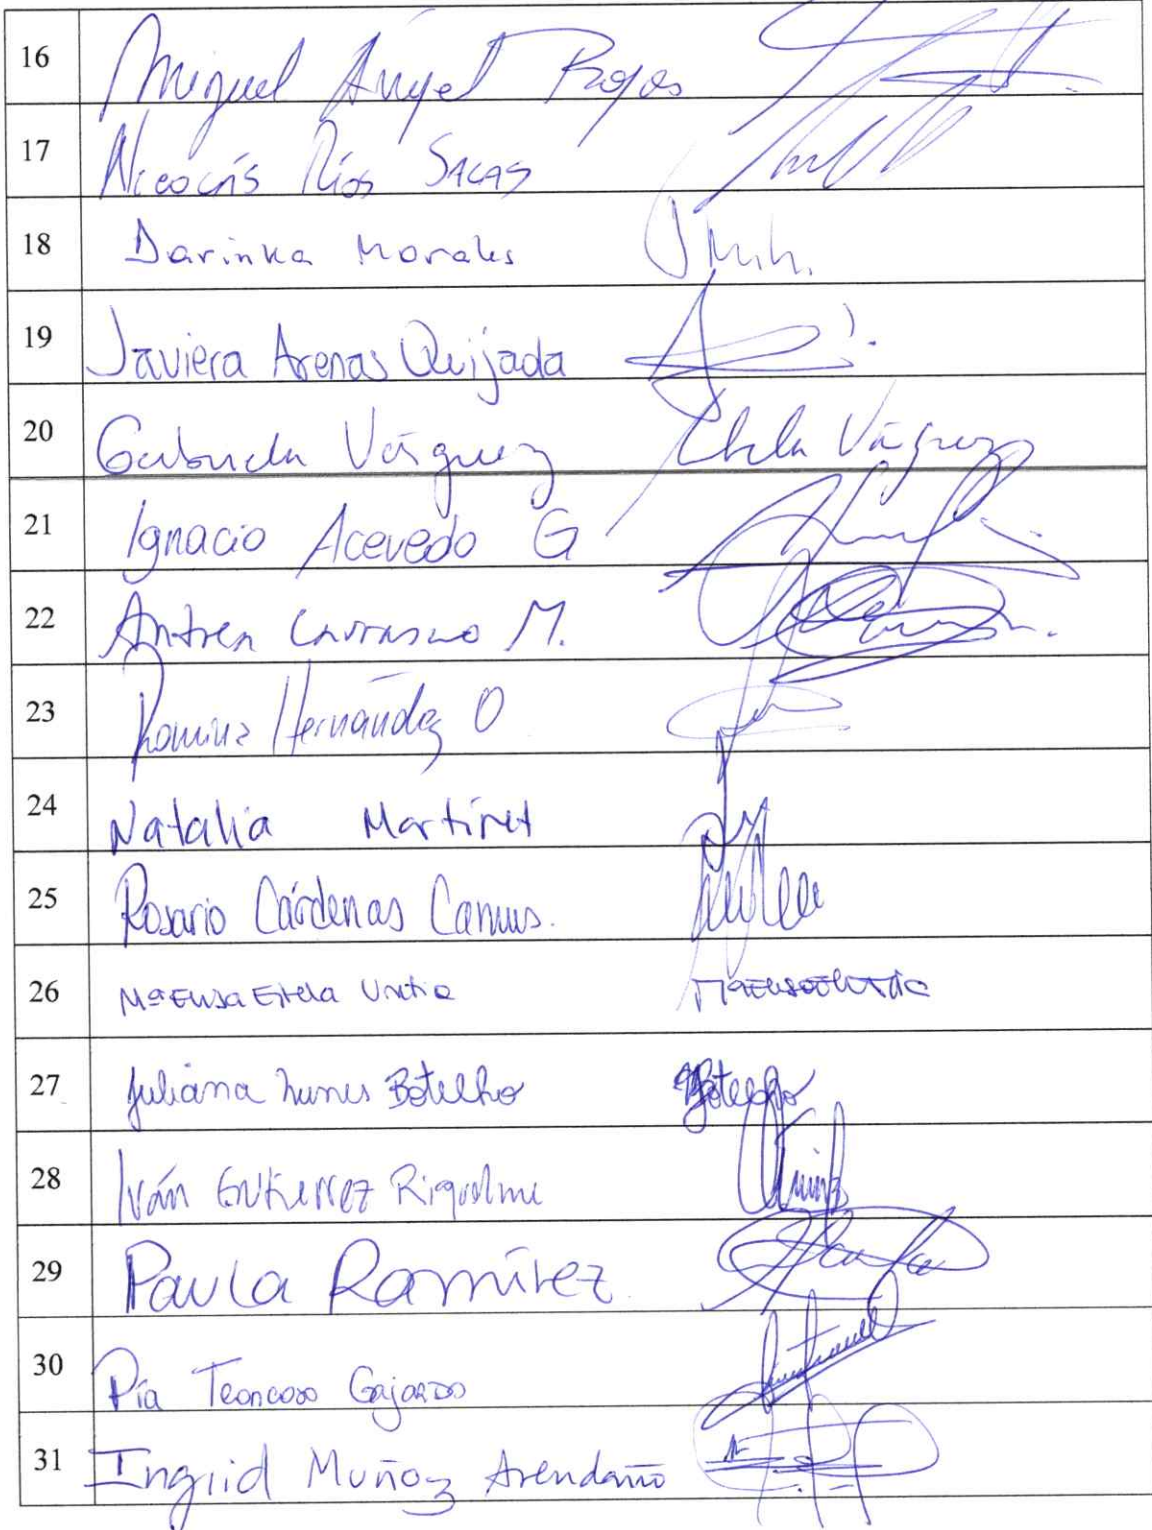 16 Miguel Ángel Rojas
17 Nicolás Ríos Salas
18 Darinka Morales
19 Javiera Arenas Quijada
20 Gabriela Vásquez Chela Vásquez
21 Ignacio Acevedo G
22 Andrea Carrasco M.
23 Romina Hernández O
24 Natalia Martínez
25 Rosario Cárdenas Camus.
26 Mª Elisa
27 Juliana Nunes Botelho Botelho
28 Iván Gutierrez Riquelme
29 Paula Ramírez
30 Pía Troncoso Gajardo
31 Ingrid Muñoz Avendaño